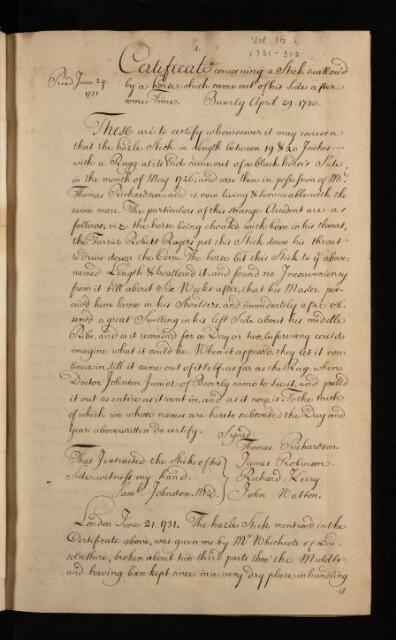 Vol. 16
1731-312
1.
Certificate concerning a Stick swallow'd
Read June 24. 1731.
by a horse which came out of his Side after
some Time. Beverly April 29. 1730.
These are to certify whomsoever it may concern
that the hazle Stick in Length between 19 & 20 Inches
with a Ringg at its End came out of a black horse's Side,
in the month of May 1726; and was then in possession of Mr.
Thomas Richardson, and is now living & serviceable with the
same man. The particulars of this strange Accident are as
follows, viz. the horse being choaked with Corn in his throat,
the Farrier Robert Rogers put this Stick down his throat
to drive down the Corn. The horse bit this Stick to ye above
named Length & swallow'd it, and found no Inconveniency
from it till about Six Weeks after, that his Master per-
ceiv'd him lame in his Shoulders, and immediately after ob-
serv'd a great Swelling in his left Side about his middle
Ribs, and so it remain'd for a Day or two before any could
imagine what it could be. When it appear'd they let it con-
tinue in till it came out of itself as far as the Ring, when
Doctor Johnston Junior of Beverly came to see it, and pull'd
it out as entire as it went in, and as it now is. To the truth
of which we whose names are hereto subscribed the Day and
Year above written do certify. Signed
Thomas Richardson.
That I extracted the Stick of his James Robinson
Side, witness my hand. Richard Kerry
Saml. Johnston. M.D. John Natton.
London June 21. 1731. The hazle Stick mention'd in the
Certificate above, was given me by Mr. Whichcote of Lin-
colnshire, broken about two third parts thro' the Middle
and having been kept since in a very dry place in handling